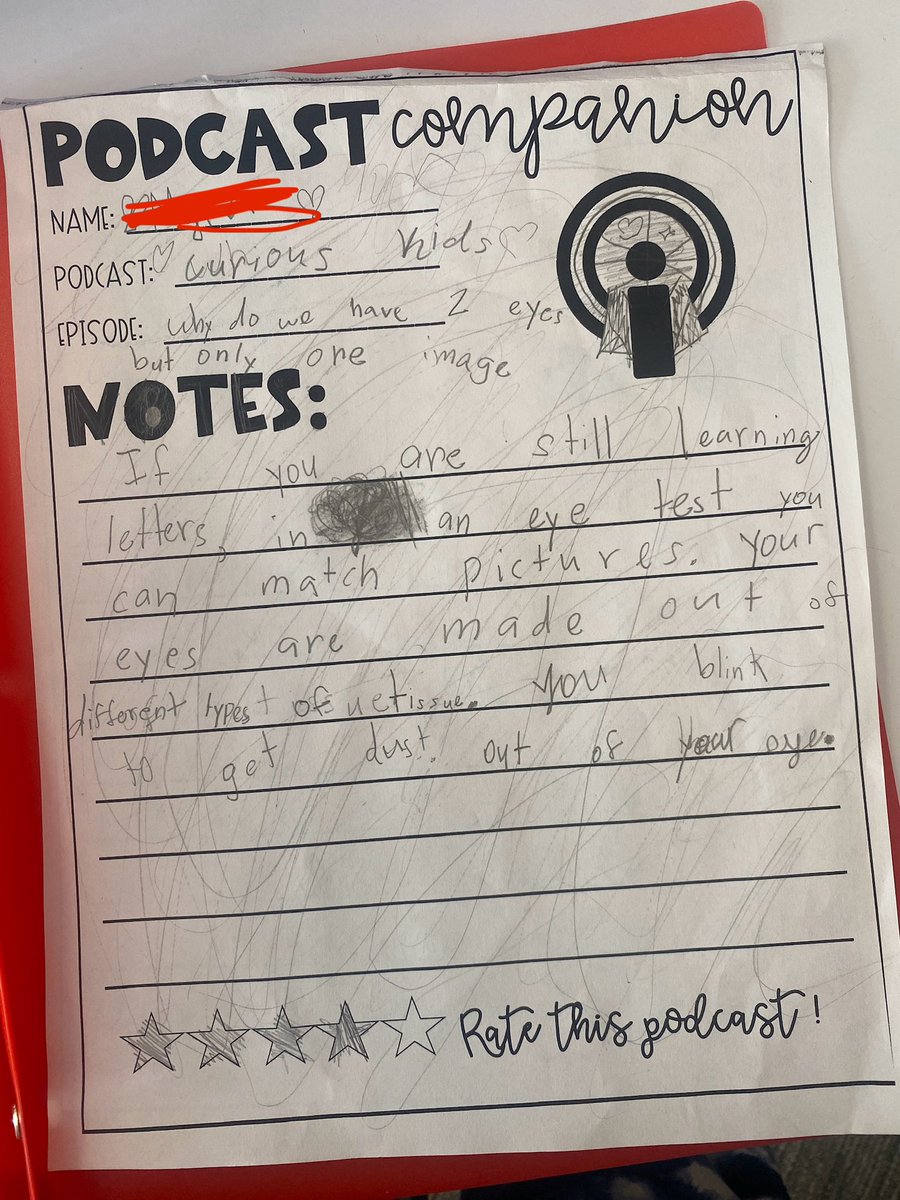 PODCAST companion
NAME:
PODCAST: curious kids
EPISODE: why do we have 2 eyes
but only one image
NOTES:
If you are still learning
letters, in an eye test you
can match pictures. your
eyes are made out of
different types of tissue. you blink
to get dust out of your eye.
Rate this podcast!